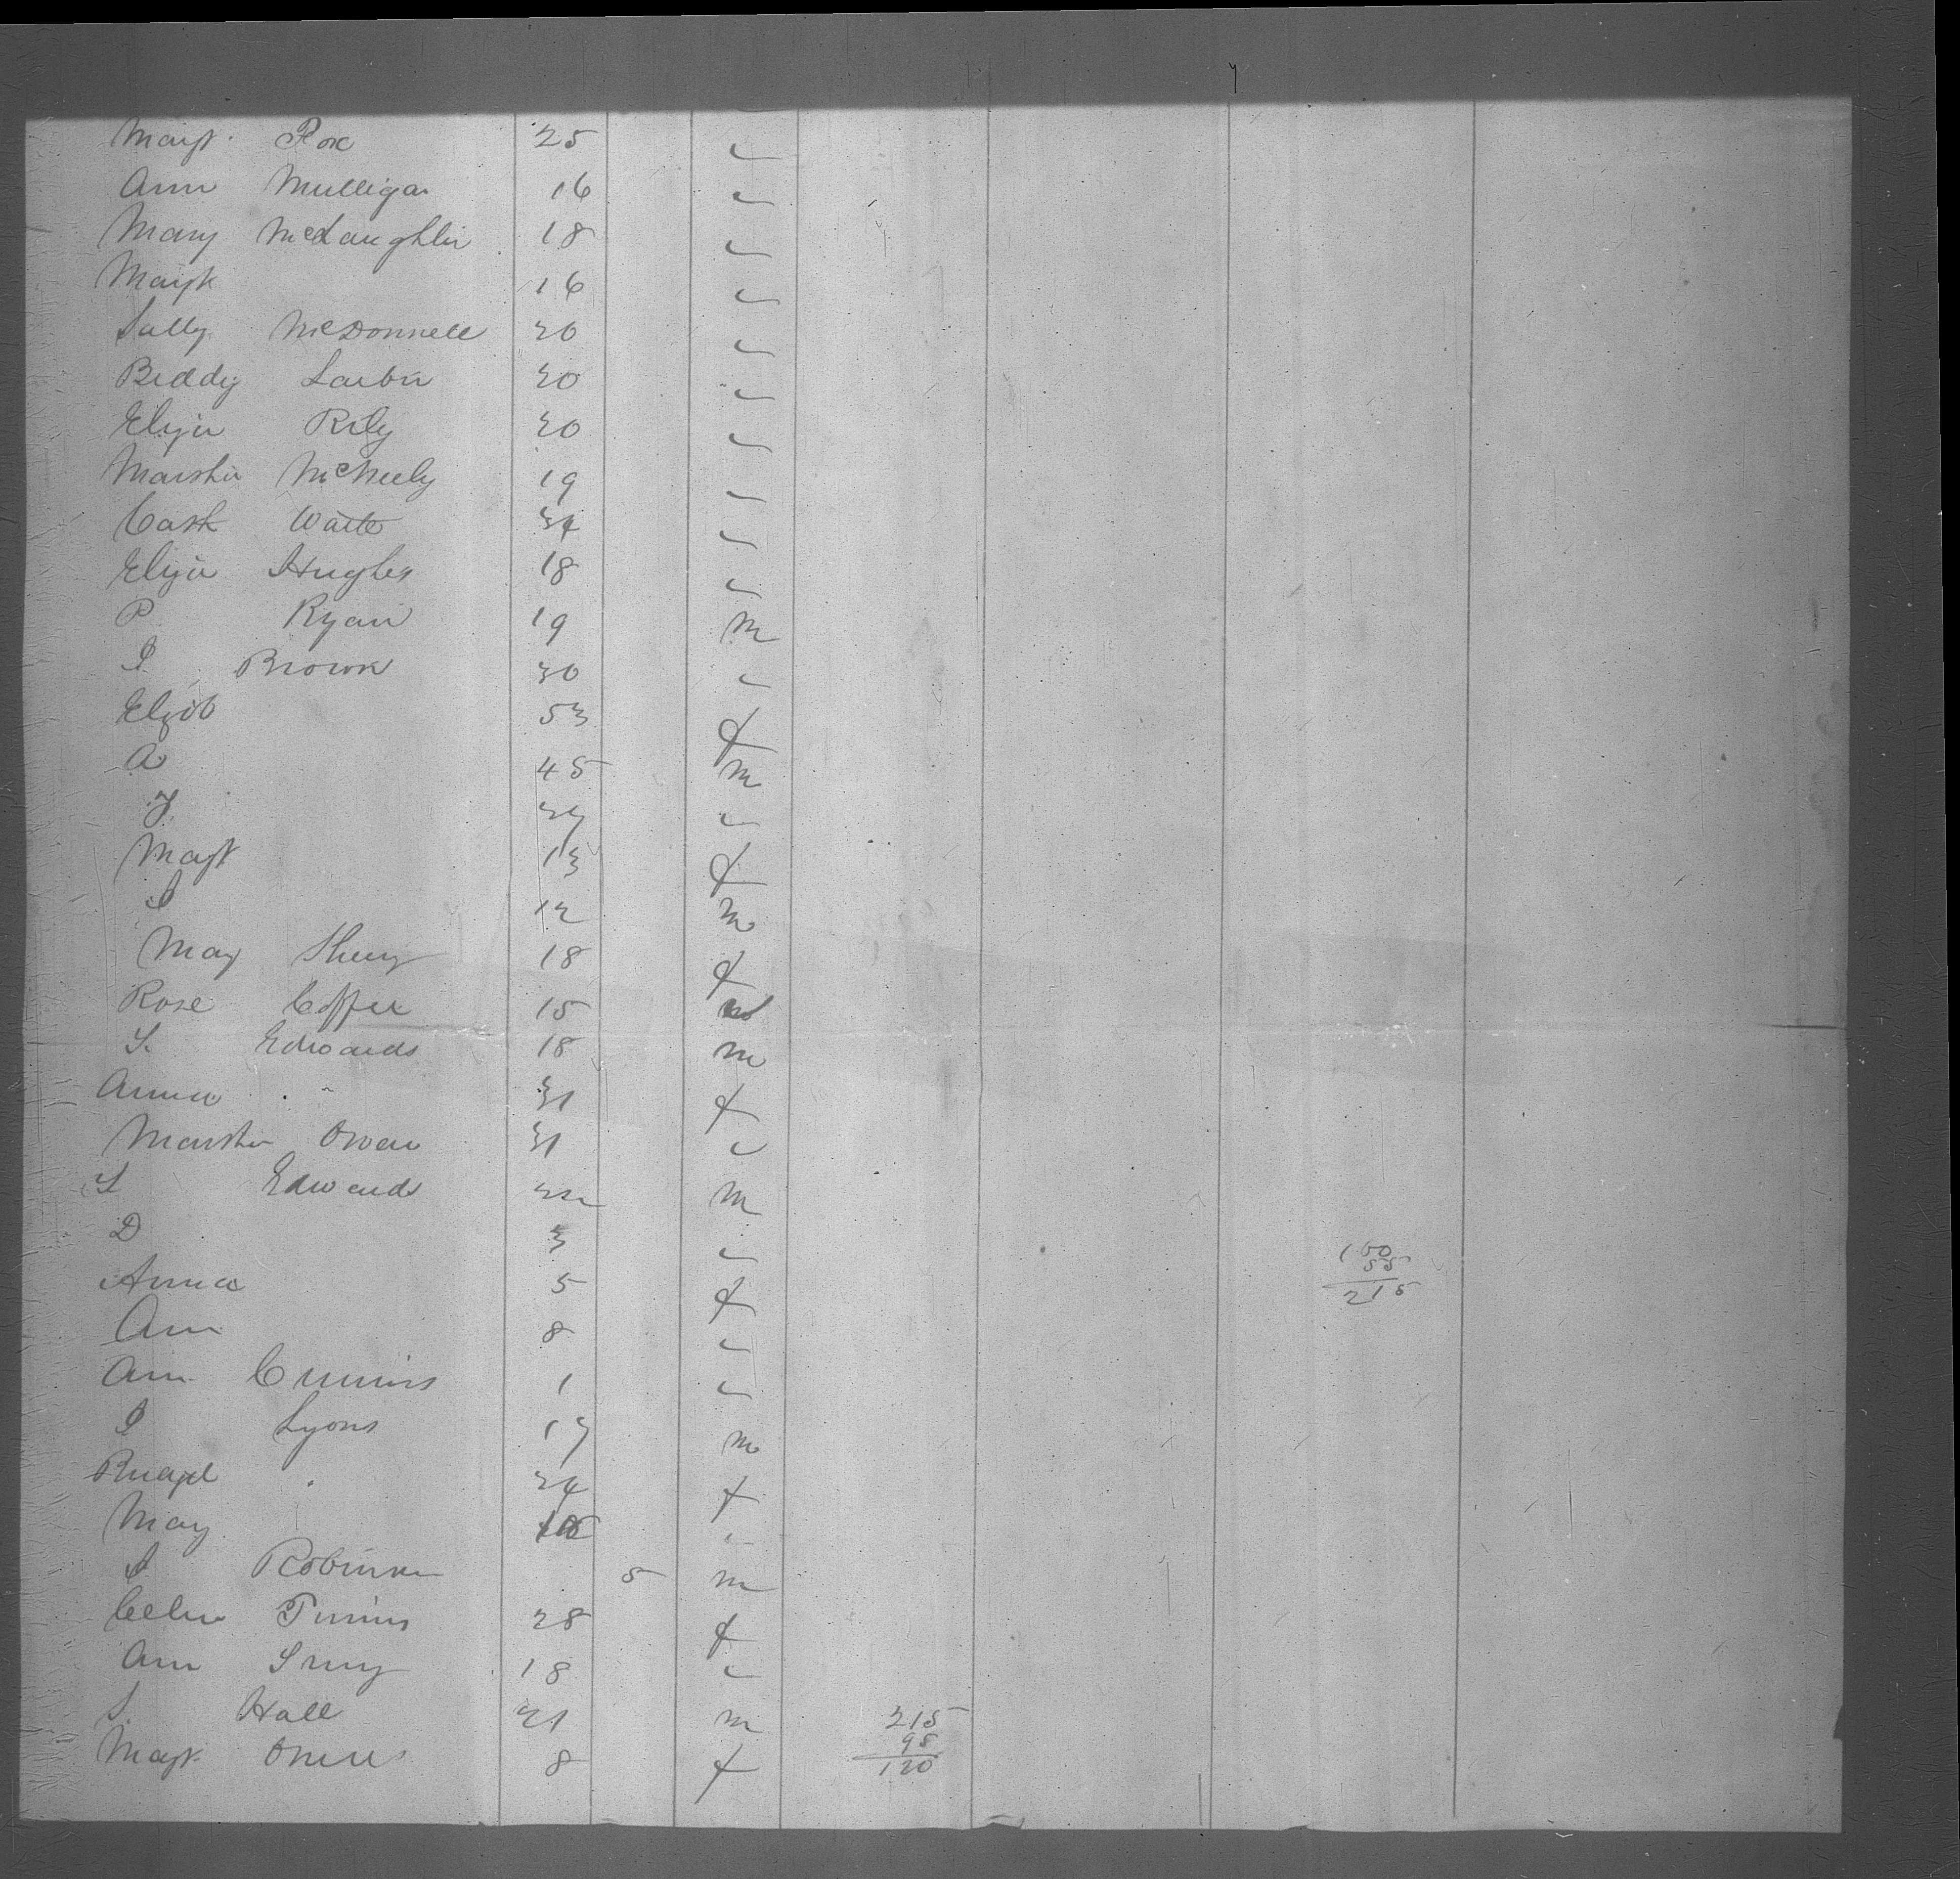 Margt. Fox 25 "
Ann Mulligan 16 "
Mary McLaughlin 18 "
Margt 16 "
Sally McDonnell 20 "
Biddy Larkin 20 "
Eliza Rily 20 "
Martha McNeely 19 "
Cath Waite 24 "
Eliza Hughes 18 "
P Ryan 19 m
J Brown 30 "
Elizb 53 f
A 45 m
J "
Margt 13 f
J 12 m
Mary 18 f
Rose 15
S. Edwards 18 m
Anna " 21 f
Martha Owen 21 "
S Edwards 22 m
D 3 "
160
55
215
Anna 5 f
Ann 8 "
Ann Cummins 1 "
J Lyons 17 m
24 f
Mary "
J Robinson 5 m
28 f
Ann 18 "
S. Hall 21 m
Margt. 8 f
215
95
120